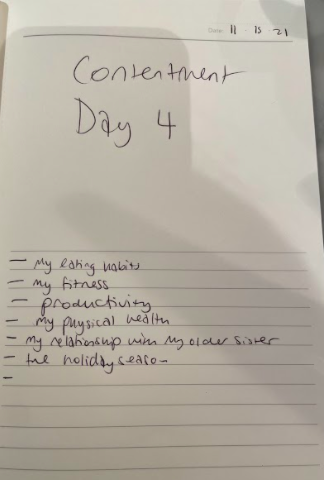 Date: 11 - 13 - 21
Contentment
Day 4
- My eating habits
- My fitness
- productivity
- My physical health
- my relationship with my older sister
- the holiday season
-